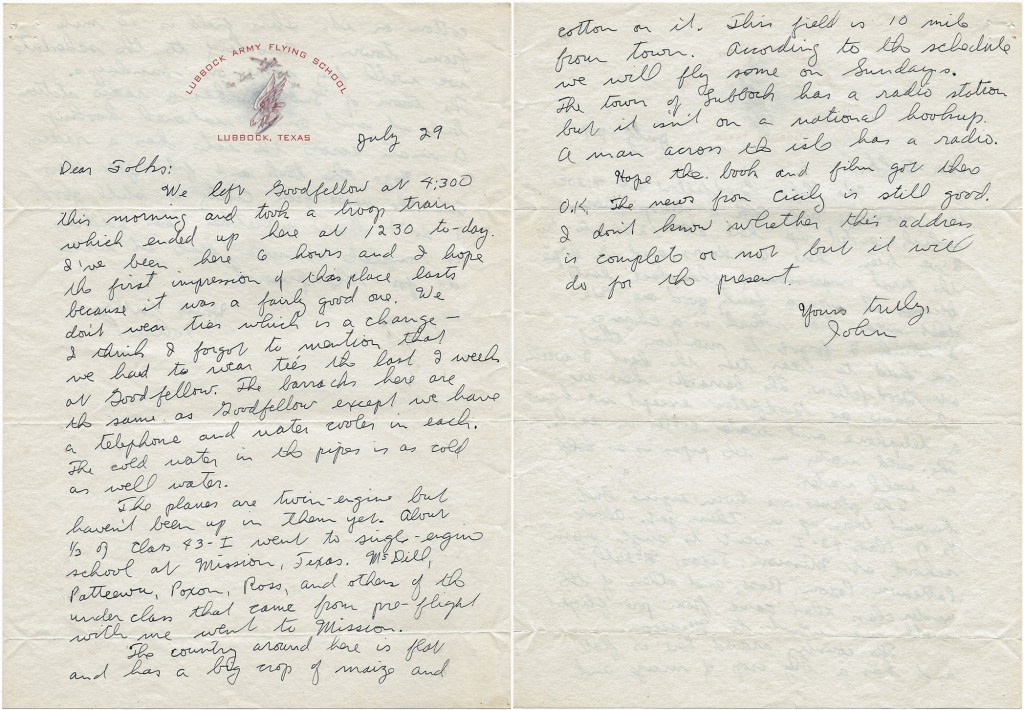 LUBBOCK ARMY FLYING SCHOOL
LUBBOCK, TEXAS
July 29
Dear Folks:
We left Goodfellow at 4:300
this morning and took a troop train
which ended up here at 1230 to-day.
I've been here 6 hours and I hope
the first impression of this place lasts
because it was a fairly good one. We
don't wear ties which is a change –
I think I forgot to mention that
we had to wear ties the last 2 weeks
at Goodfellow. The barracks here are
the same as Goodfellow except we have
a telephone and water cooler in each.
The cold water in the pipes is as cold
as well water.
The planes are twin-engine but
haven't been up in them yet. About
1/3 of class 43-I went to single-engine
school at Mission, Texas. McDill,
Patteeuw, Poxon, Ross, and others of the
under class that came from pre-flight
with me went to Mission.
The country around here is flat
and has a big crop of maize and
cotton on it. This field is 10 mile
from town. According to the schedule
we will fly some on Sundays.
The town of Lubbock has a radio station
but it isn't on a national hookup.
A man across the isle has a radio.
Hope the book and film got there
O.K. The news from Cicily is still good.
I don't know whether this address
is complete or not but it will
do for the present.
Yours truly,
John